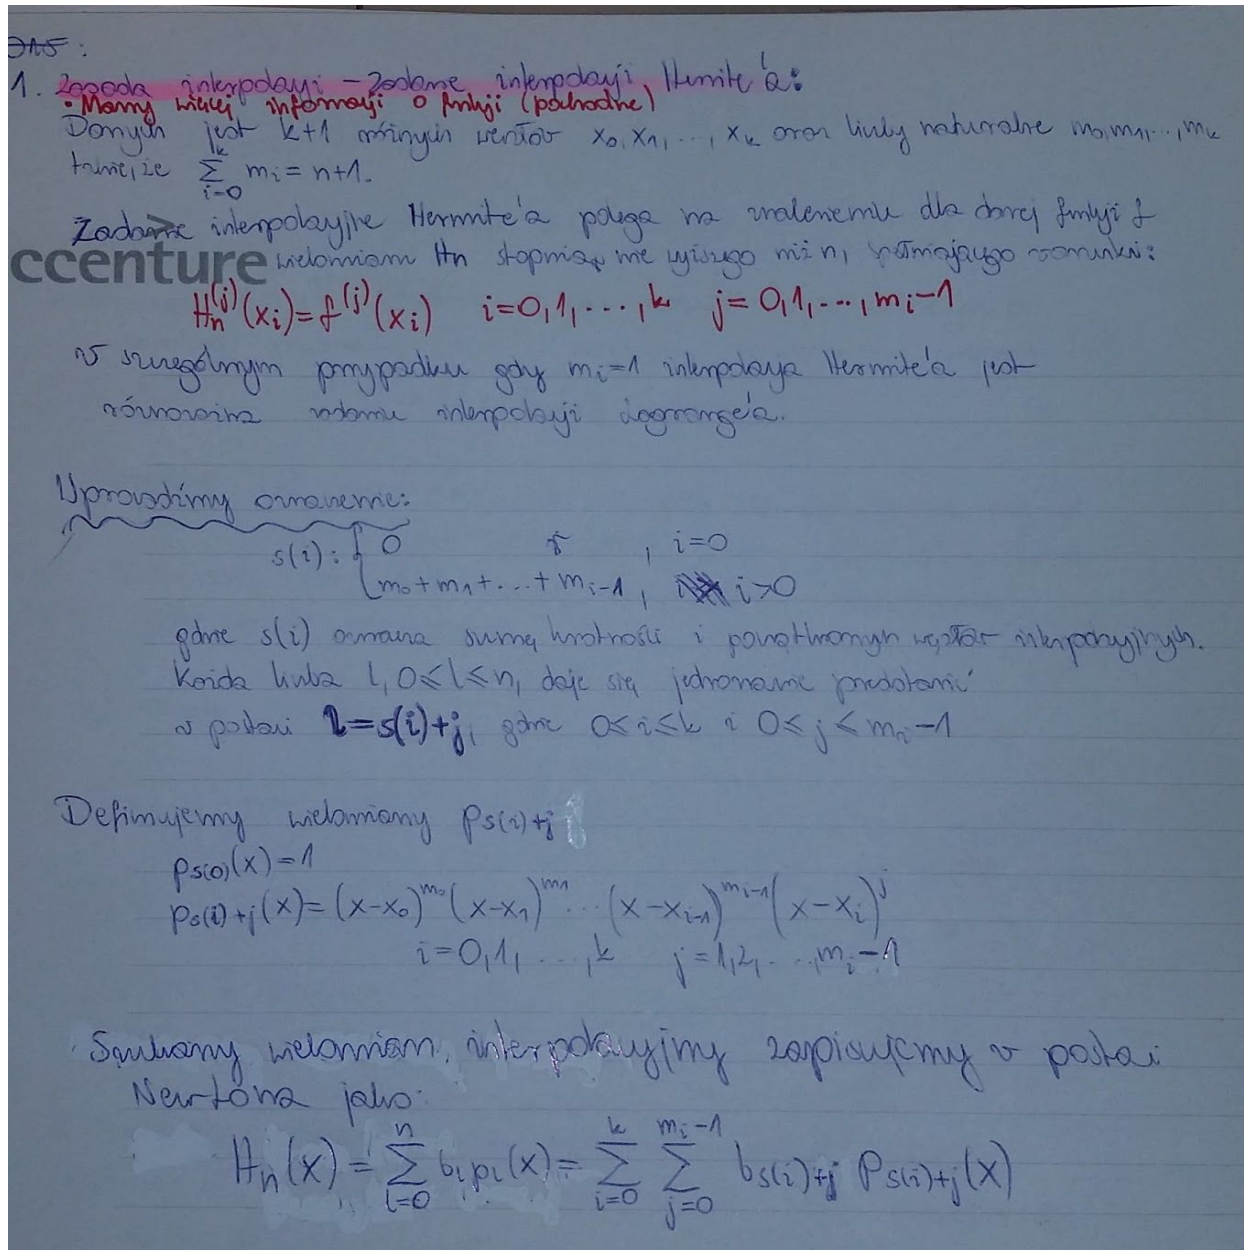 1. Zasada interpolacji – Zadanie interpolacji Hermite'a:
• Mamy więcej informacji o funkcji (pochodne)
Danych jest k+1 różnych węzłów x₀, x₁, ..., xₖ oraz liczby naturalne m₀, m₁, ..., mₖ
takie, że ∑_{i=0}^{k} mᵢ = n+1.
Zadanie interpolacyjne Hermite'a polega na znalezieniu dla danej funkcji f
>
ccenture
wielomianu Hn stopnia nie wyższego niż n, spełniającego warunki:
Hₙ^(j)(xᵢ) = f^(j)(xᵢ) i=0,1,...,k j=0,1,...,mᵢ-1
W szczególnym przypadku gdy mᵢ=1 interpolacja Hermite'a jest
równoważna zadaniu interpolacji Lagrange'a.
Wprowadźmy oznaczenie:
s(i): { 0 , i=0
m₀+m₁+...+mᵢ₋₁, i>0
gdzie s(i) oznacza sumę krotności i początkowych węzłów interpolacyjnych.
Każda liczba l, 0≤l≤n, daje się jednoznacznie przedstawić
w postaci l=s(i)+j, gdzie 0≤i≤k i 0≤j≤mᵢ-1
Definiujemy wielomiany p_{s(i)+j}
p_{s(0)}(x)=1
p_{s(i)+j}(x)=(x-x₀)^{m₀}(x-x₁)^{m₁}...(x-x_{i-1})^{m_{i-1}}(x-xᵢ)^j
i=0,1,...,k j=1,2,...,mᵢ-1
Szukany wielomian interpolacyjny zapisujemy w postaci
Newtona jako:
Hₙ(x) = ∑_{l=0}^{n} bₗpₗ(x) = ∑_{i=0}^{k} ∑_{j=0}^{mᵢ-1} b_{s(i)+j} p_{s(i)+j}(x)